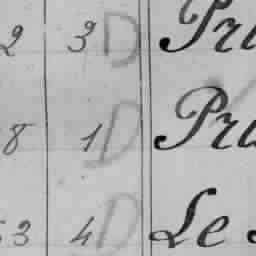 2 3 D Pr
8 1 D Pr
53 4 D Le